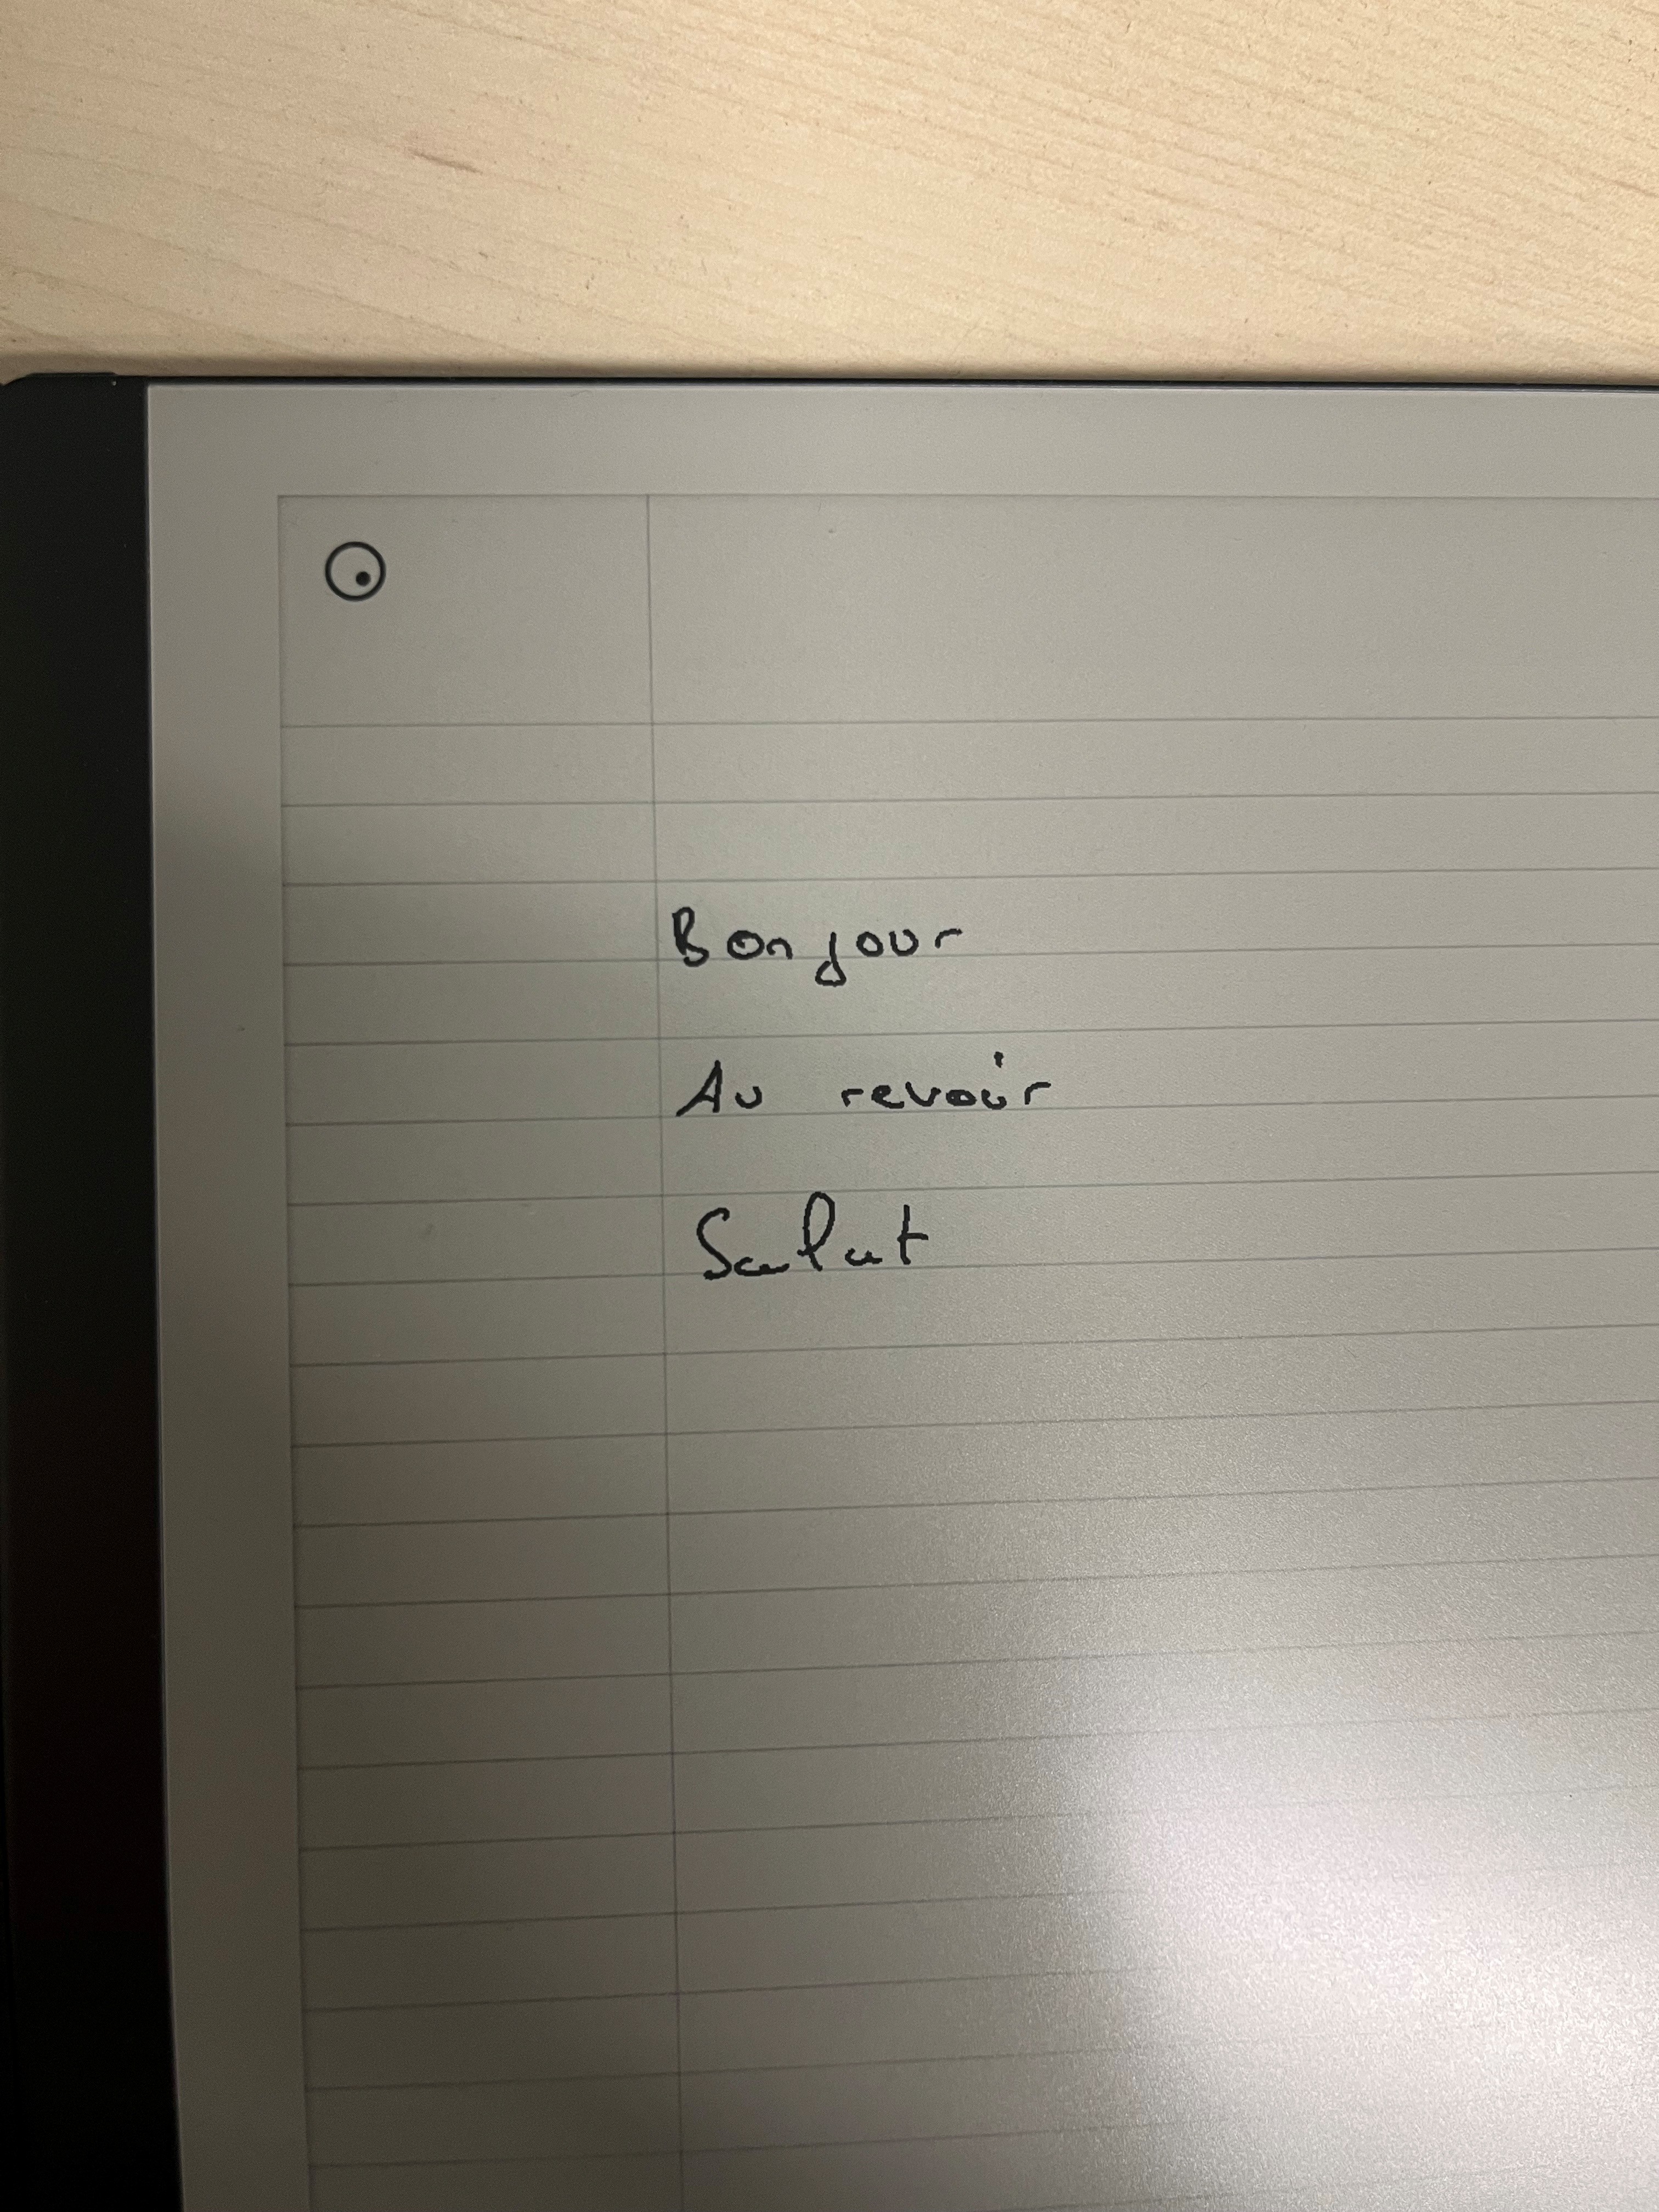 Bonjour
Au revoir
Salut